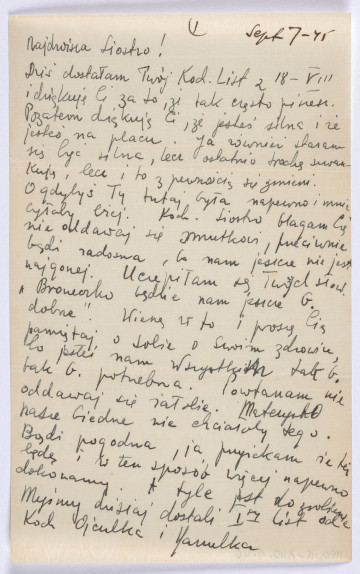 Sept 7-45
Najdroższa Siostro!
Dziś dostałam Twój Kod. List z 18-VIII
i dziękuję Ci za to, że tak często piszesz.
Pozatem dziękuję Ci, że jesteś silna i że
jesteś na placu. Ja również staram
się być silna, lecz ostatnio trochę szwan-
kuję, lecz i to z pewnością się zmieni.
O gdybyś Ty tutaj była napewno i mnie
byłoby lżej. Kod. Siostro błagam Cię
nie oddawaj się smutkowi, przeciwnie
bądź radosna, bo nam jeszcze nie jest
najgorzej. Uczepiłam się Twych słów.
" będzie nam jeszcze b.
dobrze". Wierzę w to i proszę Cię
pamiętaj o sobie o Swoim zdrowiu,
bo jesteś nam Wszystkim tak b.
tak b. potrzebna. Powtarzam nie
oddawaj się żałobie. Mateczka
nasze biedne nie chciałoby tego.
Bądź pogodna, ja przyrzekam że też
będę i w ten sposób więcej napewno
dokonamy. A tyle jest do zrobienia
Myśmy dzisiaj dostali I-szy List od
Kod. Ojculka i Mamulka